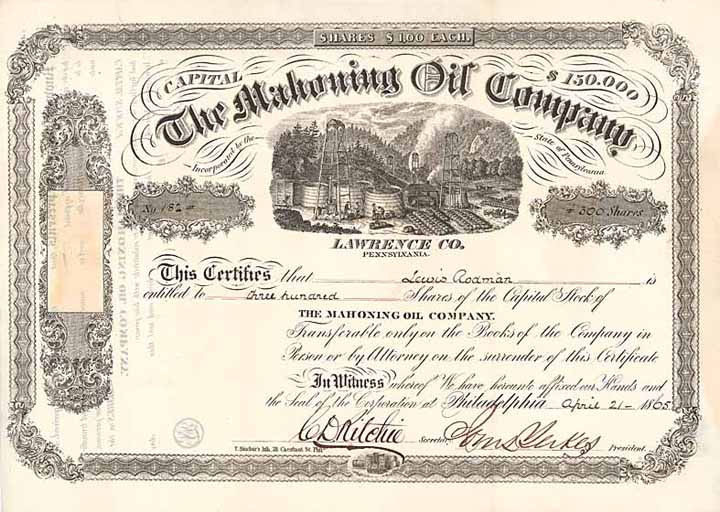 SHARES $1,00 EACH.
CAPITAL $150.000
The Mahoning Oil Company
Incorporated by the State of Pennsylvania
No 182
300 Shares
LAWRENCE CO.
PENNSYLVANIA.
This Certifies that Lewis Rodman is
entitled to three hundred Shares of the Capital Stock of
THE MAHONING OIL COMPANY.
Transferable only on the Books of the Company in
Person or by Attorney on the surrender of this Certificate
In Witness whereof We have hereunto affixed our Hands and
the Seal of the Corporation at Philadelphia April 21- 1865
C D Ritchie Secretary President.
T. Sinclair's lith. Phil